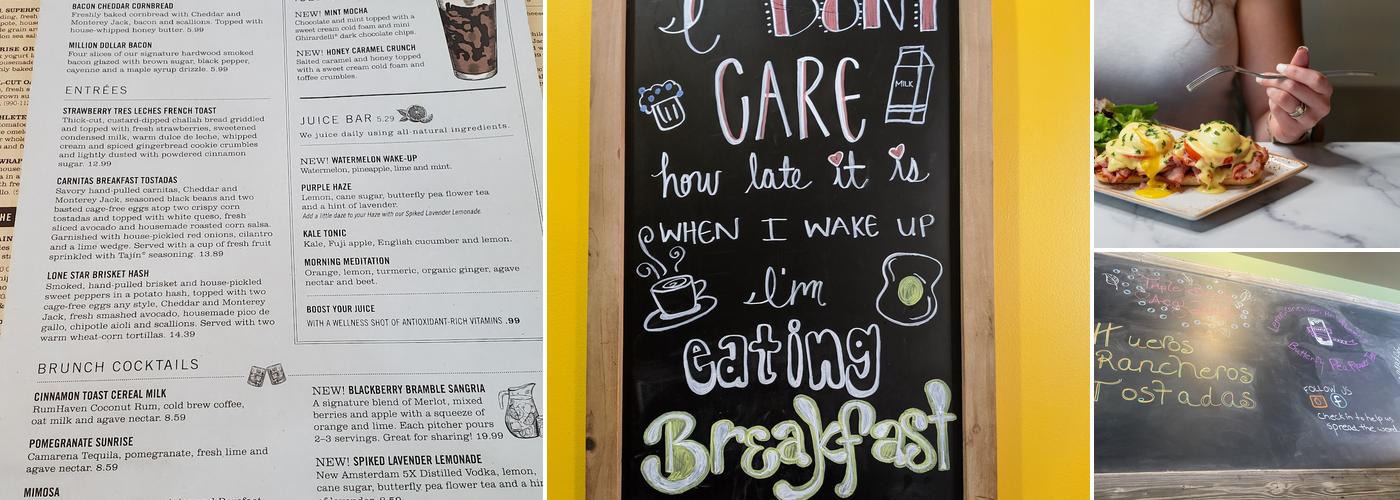 BACON CHEDDAR CORNBREAD
Freshly baked cornbread with Cheddar and
Monterey Jack, bacon and scallions. Topped with
house-whipped honey butter. 5.99
MILLION DOLLAR BACON
Four slices of our signature hardwood smoked
bacon glazed with brown sugar, black pepper,
cayenne and a maple syrup drizzle. 5.99
ENTRÉES
STRAWBERRY TRES LECHES FRENCH TOAST
Thick-cut, custard-dipped challah bread griddled
and topped with fresh strawberries, sweetened
condensed milk, warm dulce de leche, whipped
cream and spiced gingerbread cookie crumbles
and lightly dusted with powdered cinnamon
sugar. 12.99
CARNITAS BREAKFAST TOSTADAS
Savory hand-pulled carnitas, Cheddar and
Monterey Jack, seasoned black beans and two
basted cage-free eggs atop two crispy corn
tostadas and topped with white queso, fresh
sliced avocado and housemade roasted corn salsa.
Garnished with house-pickled red onions, cilantro
and a lime wedge. Served with a cup of fresh fruit
sprinkled with Tajín® seasoning. 13.89
LONE STAR BRISKET HASH
Smoked, hand-pulled brisket and house-pickled
sweet peppers in a potato hash, topped with two
cage-free eggs any style, Cheddar and Monterey
Jack, fresh smashed avocado, housemade pico de
gallo, chipotle aioli and scallions. Served with two
warm wheat-corn tortillas. 14.39
BRUNCH COCKTAILS
CINNAMON TOAST CEREAL MILK
RumHaven Coconut Rum, cold brew coffee,
oat milk and agave nectar. 8.59
POMEGRANATE SUNRISE
Camarena Tequila, pomegranate, fresh lime and
agave nectar. 8.59
MIMOSA
NEW! MINT MOCHA
Chocolate and mint topped with a
sweet cream cold foam and mini
Ghirardelli® dark chocolate chips.
NEW! HONEY CARAMEL CRUNCH
Salted caramel and honey topped
with a sweet cream cold foam and
toffee crumbles.
JUICE BAR 5.29
We juice daily using all-natural ingredients.
NEW! WATERMELON WAKE-UP
Watermelon, pineapple, lime and mint.
PURPLE HAZE
Lemon, cane sugar, butterfly pea flower tea
and a hint of lavender.
Add a little daze to your Haze with our Spiked Lavender Lemonade.
KALE TONIC
Kale, Fuji apple, English cucumber and lemon.
MORNING MEDITATION
Orange, lemon, turmeric, organic ginger, agave
nectar and beet.
BOOST YOUR JUICE
WITH A WELLNESS SHOT OF ANTIOXIDANT-RICH VITAMINS .99
NEW! BLACKBERRY BRAMBLE SANGRIA
A signature blend of Merlot, mixed
berries and apple with a squeeze of
orange and lime. Each pitcher pours
2–3 servings. Great for sharing! 19.99
NEW! SPIKED LAVENDER LEMONADE
New Amsterdam 5X Distilled Vodka, lemon,
cane sugar, butterfly pea flower tea and a hint
I DON'T
CARE
MILK
how late it is
WHEN I WAKE UP
I'm
eating
Breakfast
Triple
Hueros
Rancheros
Tostadas
Butterfly Pea
FOLLOW US
check in to help us
spread the word